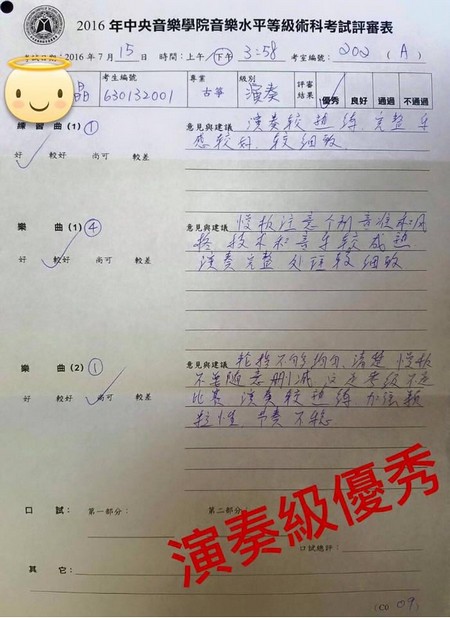 2016 年中央音樂學院音樂水平等級術科考試評審表
考試日期：2016 年 7 月 15 日 時間：上午／下午 3:58 考室編號： 202 (A)
晶 考生編號 630132001 專業 古箏 級別 演奏 評審結果 優秀 良好 通過 不通過
練習曲(1) ① 意見與建議 演奏较熟练 完整 手
感较好、较细致
好 較好 尚可 較差
樂曲(1) ④ 意見與建議 慢板注意个别音准和风
格 技术和音乐较成熟
好 較好 尚可 較差 演奏完整 处理较细致
樂曲(2) ① 意見與建議 轮指不够均匀、清楚 慢板
不要随意删减 这是考级不是
好 較好 尚可 較差 比赛 演奏较熟练 加强颗
粒性、节奏不稳
口試： 第一部分： 第二部分：
口試總評：
其它：
(C0 09)
演奏級優秀